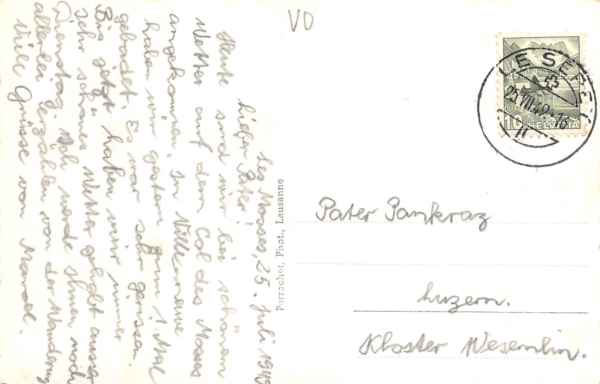 VD
Les Mosses, 25. Juli 1949
Lieber Pater!
Heute sind wir bei schönem
Wetter auf dem Col des Mosses
angekommen. In Villeneuve
haben wir gestern zum 1. Mal
gebadet. Es war sehr gerissen.
Bis jetzt haben wir immer
sehr schönes Wetter gehabt ausser
Dienstag. Ich werde Ihnen noch
allerlei erzählen von der Wanderung
Viele Grüsse von Marcel.
Perrochet, Phot., Lausanne
LE SEPEY
25.VII.49.-16
10 HELVETIA
Pater Pankraz
Luzern.
Kloster Wesemlin.